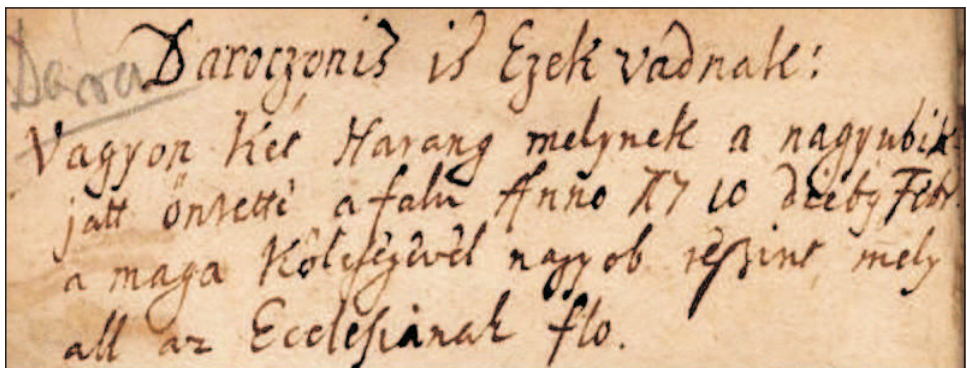 Daroczonis is Ezek vadnak:
Vagyon Két Harang melynek a nagyubik-
jatt öntette a falu Anno 1710 diebg Febr.
a maga Költsegevel nagyob reszint mely
all az Ecclesianak flo.